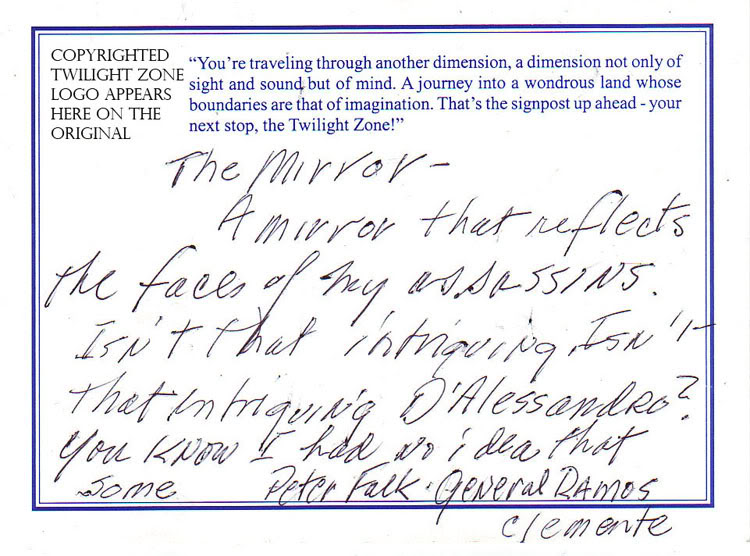 COPYRIGHTED
TWILIGHT ZONE
LOGO APPEARS
HERE ON THE
ORIGINAL
“You’re traveling through another dimension, a dimension not only of
sight and sound but of mind. A journey into a wondrous land whose
boundaries are that of imagination. That’s the signpost up ahead - your
next stop, the Twilight Zone!”
The Mirror -
A mirror that reflects
the faces of my assassins.
Isn't that intriguing. Isn't
that intriguing D'Alessandro?
You know I had no idea that
some Peter Falk . General Ramos
Clemente